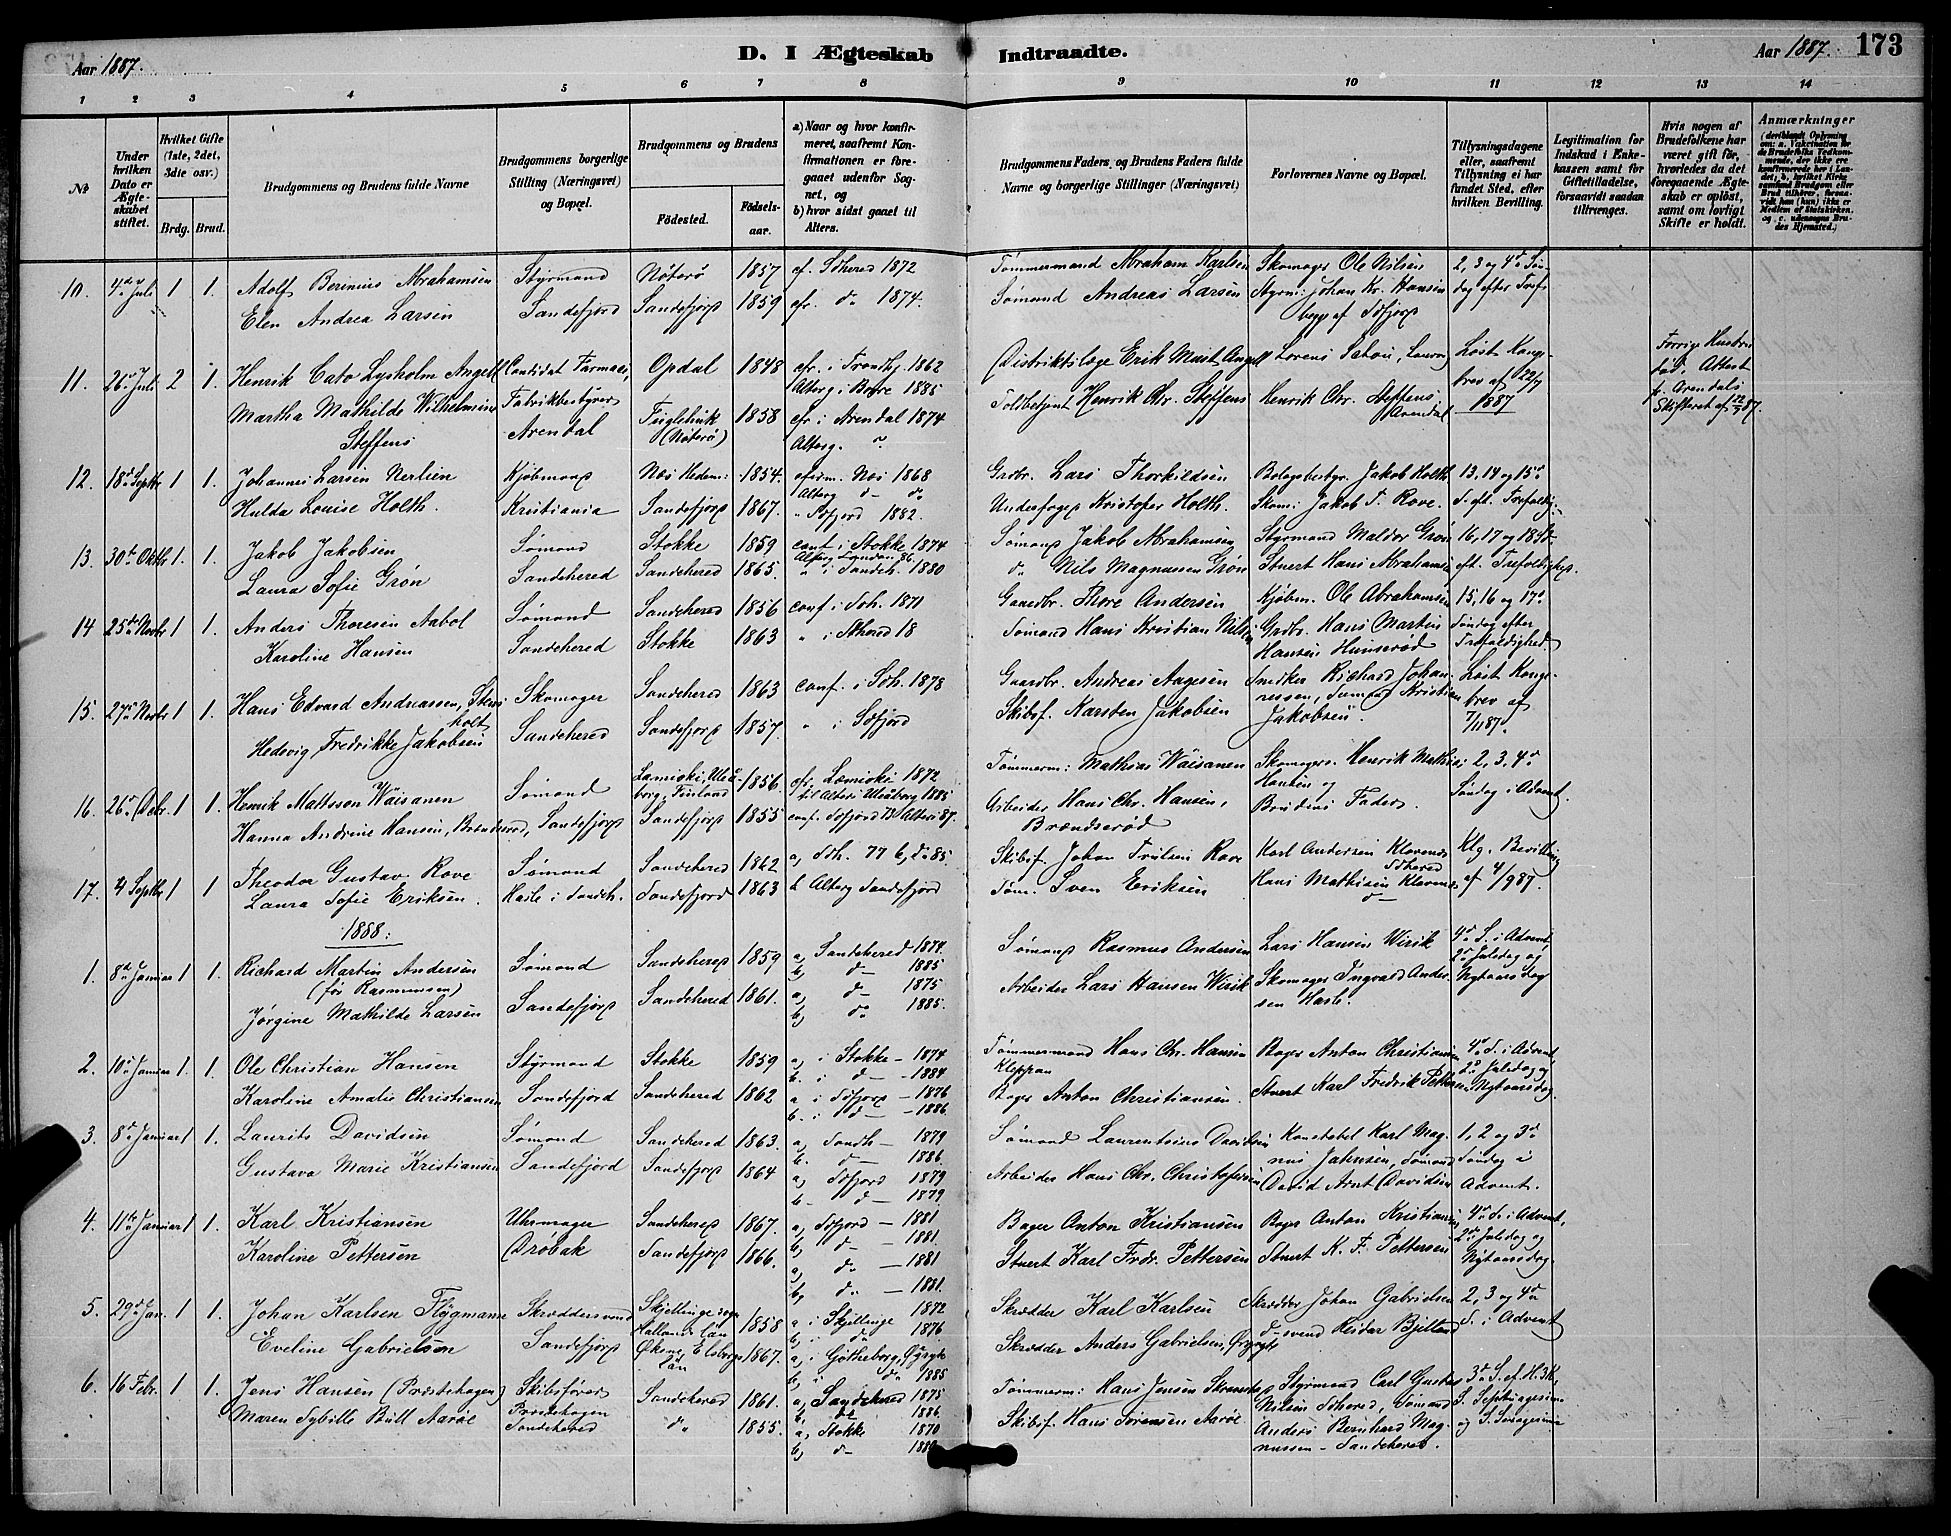 Aar 1887.
D. I Ægteskab Indtraadte.
Aar 1887. 173
1 2 3 4 5 6 7 8 9 10 11 12 13 14
No
Under hvilken Dato er Ægteskabet stiftet.
Hvilket Gifte (1ste, 2det, 3die osv.)
Brdg. Brud.
Brudgommens og Brudens fulde Navne
Brudgommens borgerlige Stilling (Næringsvei) og Bopæl.
Brudgommens og Brudens
Fødested. Fødselsaar.
a) Naar og hvor konfirmeret, saafremt Konfirmationen er foregaaet udenfor Sognet, og
b) hvor sidst gaaet til Alters.
Brudgommens Faders og Brudens Faders fulde Navne og borgerlige Stillinger (Næringsvei)
Forlovernes Navne og Bopæl.
Tillysningsdagene eller, saafremt Tillysning ei har fundet Sted, efter hvilken Bevilling.
Legitimation for Indskud i Enkekassen samt for Giftetilladelse, forsaavidt saadan tiltrænges.
Hvis nogen af Brudefolkene har været gift før, hvorledes da det foregaaende Ægteskab er opløst, samt om lovligt Skifte er holdt.
Anmærkninger
10. 4de Juli 1 1. Adolf Berinius Abrahamsen Styrmand Nøterø 1857 cf. Sdhered 1872 Tømmermand Abraham Karlsen Skomager Ole Nilsen 2, 3 og 4de Søn-
Elen Andrea Larsen Sandefjord Sandefjord 1859 cfr. do 1874. Sømand Andreas Larsen Styrm: Johan Kr. Hansen dag efter Tref.
begge af Sdfjord
11. 26de Juli 2 1. Henrik Cato Lysholm Angell Candidat Farmaci, Opdal 1848 cfr. i Trondhj. 1862 Distriktslæge Erik Must Angell Lorens Schou, Løst Konge-
Alterg. i 1885 brev af 22/7
Martha Mathilde Wilhelmine Fabrikbestyrer Fuglehuk 1858 cfr. i Arendal 1874 Toldbetjent Henrik Chr. Steffens Henrik Chr. Steffens 1887
Steffens Arendal (Nøterø) Altrg. Arendal
Forrige Hustru død. Attest fr. Arendals Skifteret af 22/7 87.
12. 18de Septbr 1 1. Johannes Larsen Nerlien Kjøbmand Næs Hedem: 1854. cfirm. Næs 1868 Grdbr. Lars Thorkildsen Bologsbestyr. Jakob Holth 13, 14 og 15de
Altrg d- do
Hulda Louise Holth. Kristiania Sandefjord 1867. " Sdfjord 1882. Underfoged Kristofer Holth. Skom: Jakob T. Rove. S. eft. Trefoldigh.
13. 30te Oktbr 1. 1. Jakob Jakobsen Sømand Stokke 1859 conf. i Stokke 1874 Sømand Jakob Abrahamsen Styrmand Maldor Grøn 16, 17 og 18 S.
Laura Sofie Grøn Sandehered Sandehered 1865. " i Sandeh. 1880 do Nils Magnussen Grøn Stuert Hans Abrahamsen eft. Trefoldighed.
14 25de Novbr 1 1. Anders Thoresen Aabol Sømand Sandehered 1856 conf. i Sdh. 1871 Gaardbr. Thore Andersen Kjøbm. Ole Abrahamsen 15, 16 og 17de
Karoline Hansen Sandehered Stokke 1863 " i Sdhered 18 Sømand Hans Kristian Nilsen Grdbr. Hans Martin Søndag efter
Hansen Hunsrød Trefoldighed
15. 27de Novbr 1 1. Hans Edvard Andreassen, Stens- Skomager Sandehered 1863 conf. i Sdh. 1878 Gaardbr. Andreas Aagesen Snedker Richard Johan- Løst Konge-
holt nessen, Sømand Kristian brev af
Hedevig Fredrikke Jakobsen Sandehered Sandefjord 1857. " i Sdfjord Skibsf. Karsten Jakobsen Jakobsen. 7/11 87.
16. 26de Debr. 1 1. Henrik Mattsson Wäisanen Sømand Uleå- borg, Finland 1856. 1872 Tømmerm: Mathias Wäisanen Skomagers. Henrik Mathis: 2, 3, 4de
til Alters Uleåborg 1885 Hansen og Søndag i Advent.
Hanna Andrine Hansen, Brændserød, Sandefjord Sandefjord 1855 conf. Sdfjord 73 Alters 87. Arbeider Hans Chr. Hansen, Brudens Fader.
Brændserød
17. 4 Septbr 1 1 Theodor Gustav Rove Sømand Sandehered 1862 a, Sdh. 77 b, do 85. Skibsf. Johan Trulsen Rove Karl Andersen Klavenæs Klg. Bevilling
Sdhered
Laura Sofie Eriksen. Hasle i Sandeh. Sandefjord 1863 b Altrg Sandefjord Tøm. Sven Eriksen Hans Mathisen Klavenæs af 4/9 87.
1888:
1. 8de Januar 1 1. Richard Martin Andersen Sømand Sandehered 1859 a, Sandehered 1874. Sømand Rasmus Andersen Lars Hansen Wirik 4de S. i Advent,
(før Rasmussen) b, d- 1885 2de Juledag og
Jørgine Mathilde Larsen Sandefjord Sandehered 1861. a, d- 1875 Arbeider Lars Hansen Wirik Skomager Ingvald Ander- Nytaarsdag
b, do 1885. sen Hasle.
2. 10de Januar 1. 1. Ole Christian Hansen Styrmand Stokke 1859 a, i Stokke - 1874 Tømmermand Hans Chr. Hansen Bager Anton Christiansen 4de S. i Advent
b. i d- - 1884 Kleppan 2de Juledag og
Karoline Amalie Christiansen Sandefjord Sandehered 1862 a i Sdfjord - 1876 Bager Anton Christiansen. Stuert Karl Fredrik Pettersen Nytaarsdag.
b. i d- - 1886.
3. 8de Januar 1 1. Laurits Davidsen Sømand Sandehered 1863. a, Sandh - 1879 Sømand Laurentsius Davidsen Konstabel Karl Mag- 1, 2 og 3de
b. d- 1886. nus Jahnsen, Sømand Søndag i
Gustava Marie Kristiansen Sandefjord Sandefjord 1864 a, Sdfjord 1879 Arbeider Hans Chr. Christofersen David Arnt Davidsen Advent.
b- d- 1879
4. 11te Januar 1 1. Karl Kristiansen Uhrmager Sandehered 1867. a, Sdfjord - 1881 Bager Anton Kristiansen Bager Anton Kristiansen 4de S. i Advent,
b, d- - 1881. 2de Juledag og
Karoline Pettersen Drøbak Sandefjord 1866. a, do - 1881 Stuert Karl Fredr. Pettersen Stuert K. F. Pettersen Nytaarsdag.
b, do - 1881.
5. 29de Jan. 1 1. Johan Karlsen Flygmann Skræddersvend Skjellinge sogn Hallands Län 1858 a i Skjellinge 1872 Skrædder Karl Karlsen Skrædder Johan Gabrielsen 2, 3 og 4de
b, i do 1876 do svend Reidar Bjelland S. i Advent
Eveline Gabrielsen Sandefjord Elfsborgs län 1867. a, i Gøtheborg, Skrædder Anders Gabrielsen,
b, i do 1885
6. 16 Febr. 1 1. Jens Hansen (Præstehagen) Skibsfører Sandehered 1861. a, Sandehered 1875 Tømmerm: Hans Jensen Styrmand Carl Gustav 3de S. ef. H. 3 K.
b, do 1886 Nilsen Sdhered, Sømand S. Septuagesima
Maren Sybille Bull Aarøe Præstehagen Sandehered do 1855. a, Stokke 1870 Skibsf. Hans Sørensen Aarøe Anders Bernhard Mag- og S. Sexagesima
b, d- nussen - Sandehered.